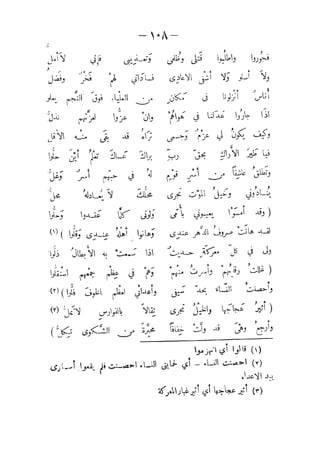 — ١٠٨ —
فجوروا واطلبوا قتلى وظلمى وتعذيبى فإنى لا أمل
ولا أسلو ولا أشفى الاعادى فساداتى لهم فخر وفضل
أناس أنزلونا فى مكان من العلياء فوق النجم يعلو
اذا جاروا عدلنا فى هواهم وان عزوا لعزتهم نذل
وكيف يكون لى عزم وجسمى تراه قد بقى منه الأقل
فيا طير الأراك بحق رب براك عساك تعلم أين حلوا
وتطلق عاشقا من أسر قوم له فى حبهم أسر وغل
ينادونى وخيل الموت تجرى محلك لا يعادله محل
( وقد أمسوا يعيبونى بأمى ولونى كلما عقدوا وحلوا
لقد هانت صروف الدهر عندى وهانوا أهله عندى وقلوا (١)
ولى فى كل معركة حديث اذا سمعت به الأبطال ذلوا
( غلبت رقابهم وأسرت منهم وهم فى عظم جمعهم استقلوا
وأحصنت النساء بحد سيفى وأعدائى لعظم الخوف فلوا ) (٢)
( أثير عجاجها والخيل تجرى ثقالا بالفوارس لا تمل (٣)
وأرجع وهى قد ولت خفافا محيرة من الشكوى تكل )
(١) قالوا أي انهزموا
(٢) احصنت النساء – أي لحايتى النساء احصنت فلم يقعوا أسارى
بيد الاعداء.
(٣) أثير عجاجها أي أثير غبار المعركة